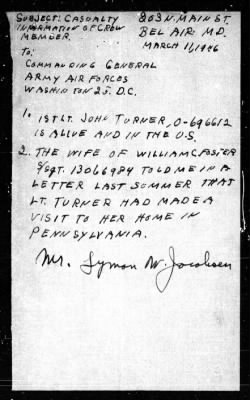 SUBJECT: CASUALTY
INFORMATION OF CREW
MEMBER.
803 N. MAIN ST.
BEL AIR. MD.
MARCH 1, 1946
TO:
COMMANDING GENERAL
ARMY AIR FORCES
WASHINTON 25. D.C.
1. 1ST LT. JOHN TURNER, O-696612
IS ALIVE AND IN THE U.S.
2. THE WIFE OF WILLIAM C. FOSTER
S/SGT. 13066984 TOLD ME IN A
LETTER LAST SUMMER THAT
LT. TURNER HAD MADE A
VISIT TO HER HOME IN
PENNSYLVANIA.
Mr. Lyman W. Jacobsen